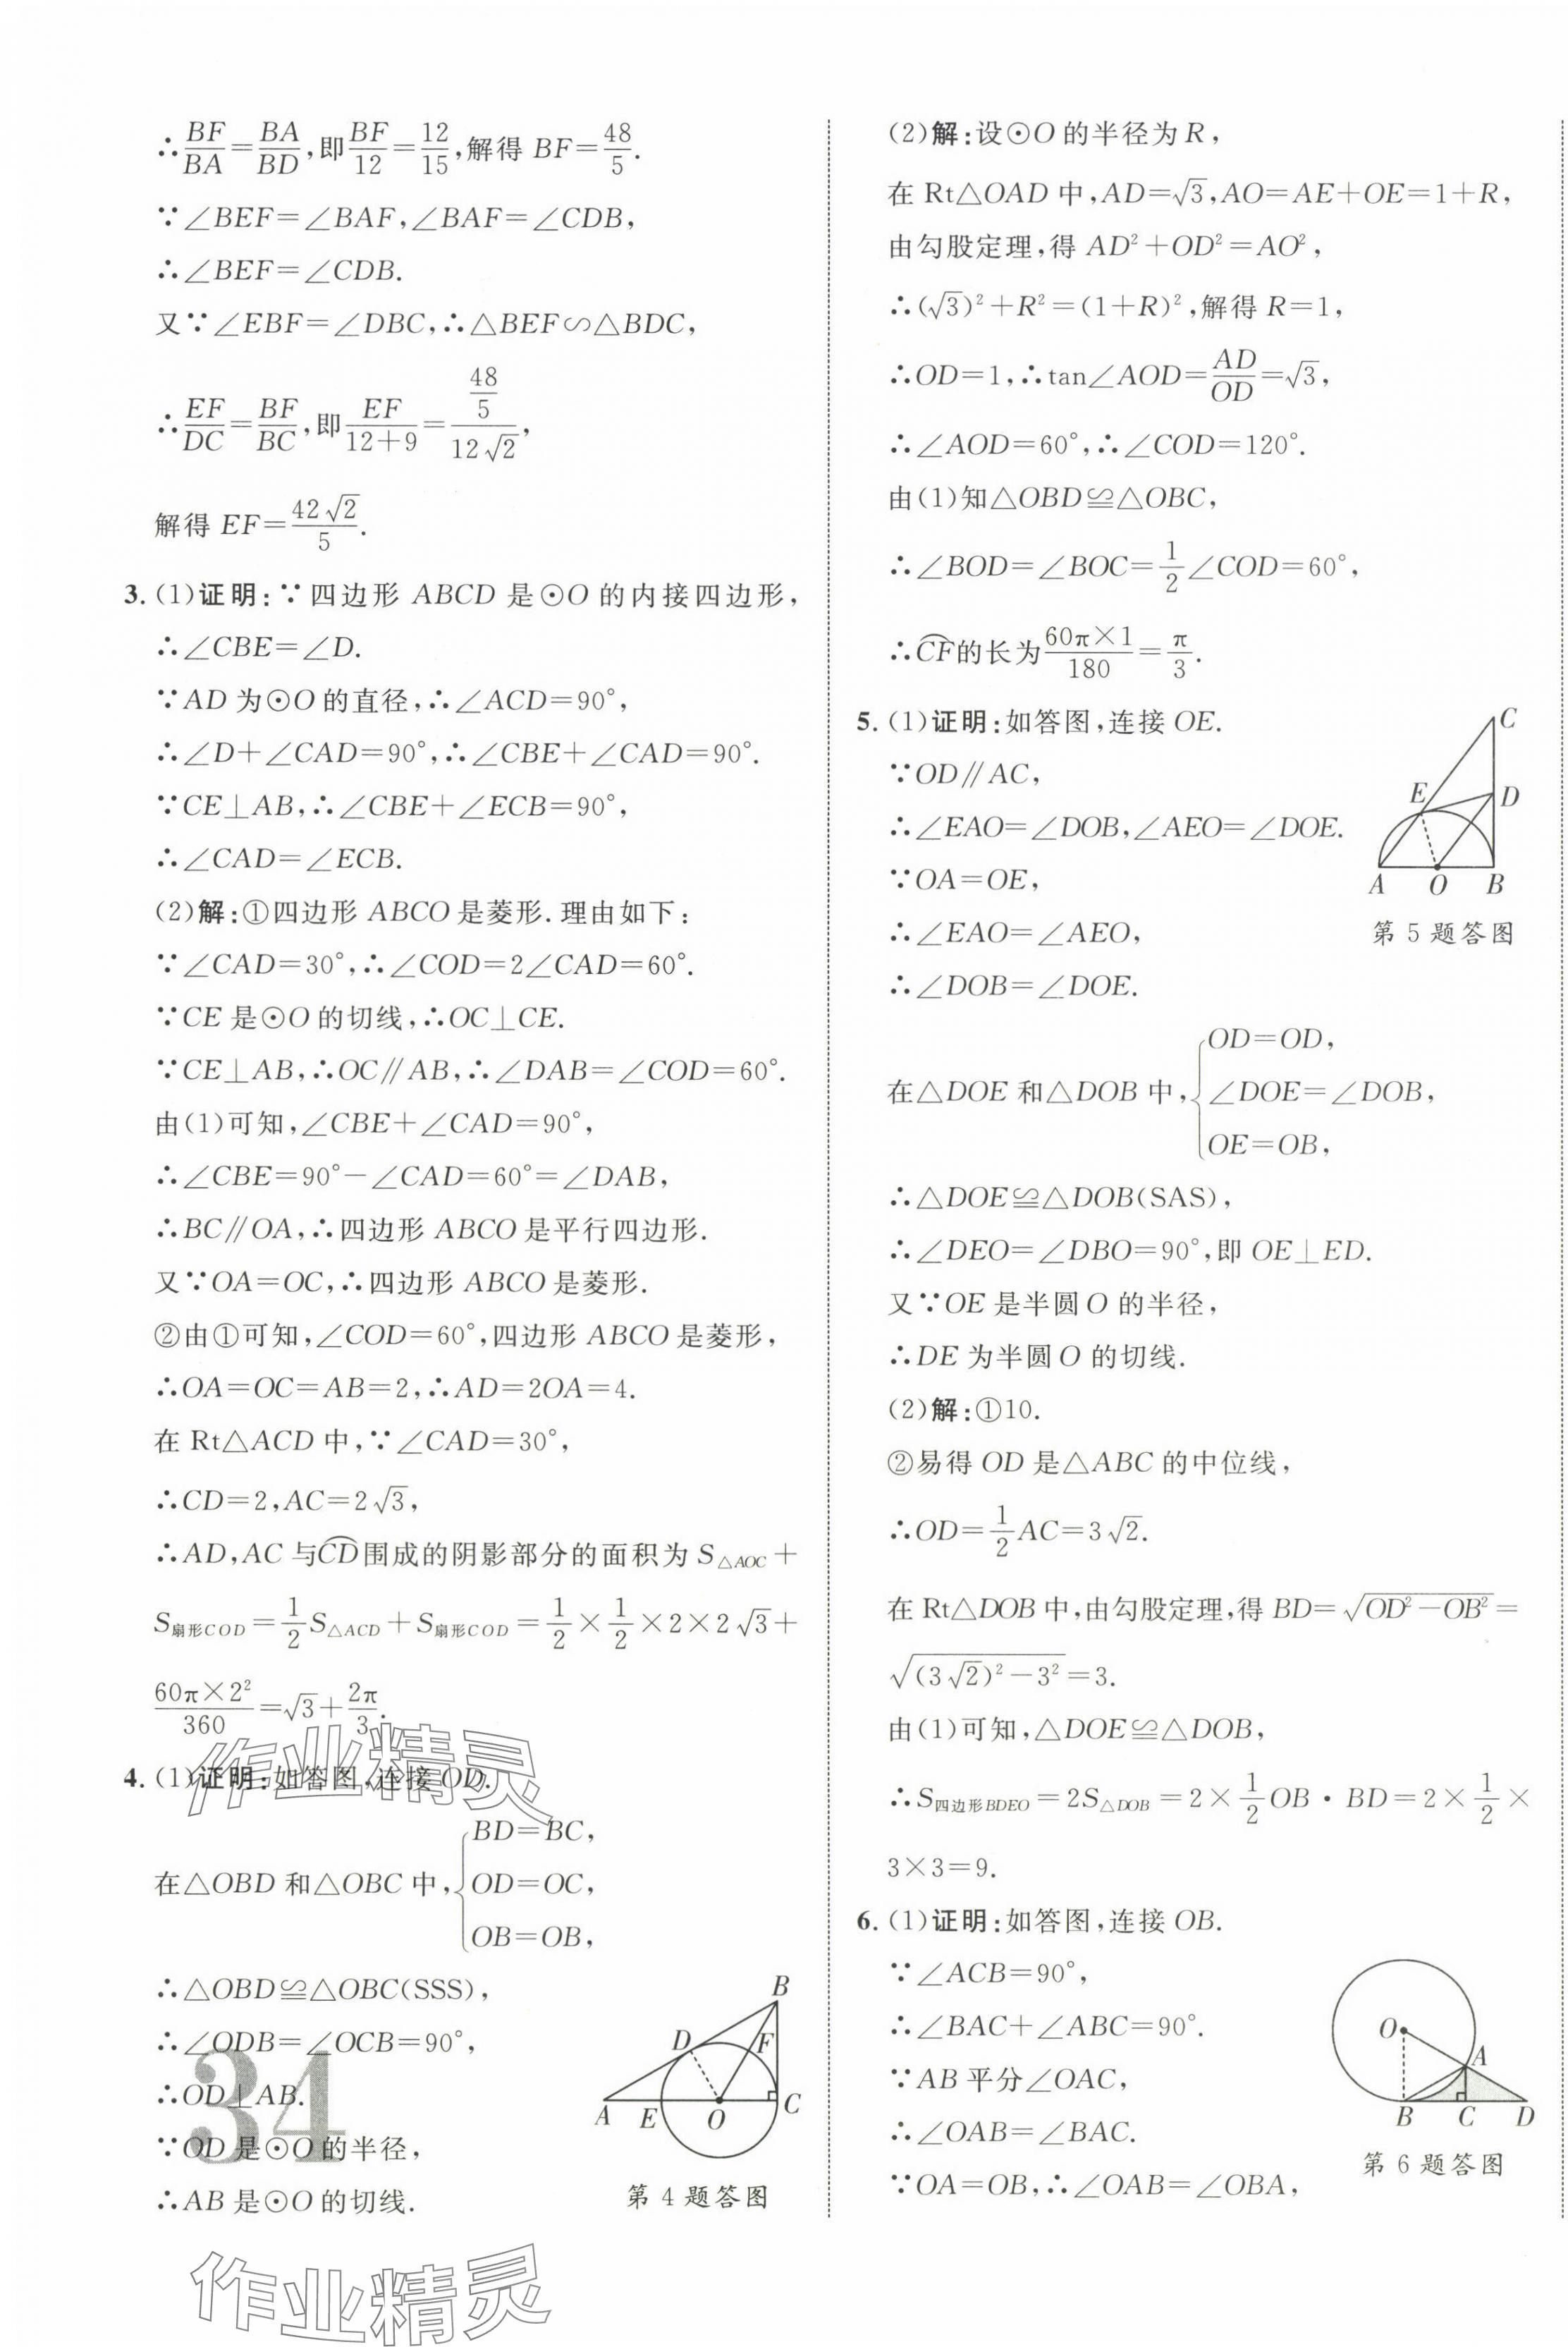 ∴BF/BA=BA/BD,即BF/12=12/15,解得 BF=48/5.
∵∠BEF=∠BAF,∠BAF=∠CDB,
∴∠BEF=∠CDB.
又∵∠EBF=∠DBC,∴△BEF∽△BDC,
∴EF/DC=BF/BC,即EF/(12+9)=(48/5)/(12√2),
解得 EF=42√2/5.
3. (1)证明:∵四边形 ABCD 是⊙O 的内接四边形,
∴∠CBE=∠D.
∵AD 为⊙O 的直径,∴∠ACD=90°,
∴∠D+∠CAD=90°,∴∠CBE+∠CAD=90°.
∵CE⊥AB,∴∠CBE+∠ECB=90°,
∴∠CAD=∠ECB.
(2)解:①四边形 ABCO 是菱形.理由如下:
∵∠CAD=30°,∴∠COD=2∠CAD=60°.
∵CE 是⊙O 的切线,∴OC⊥CE.
∵CE⊥AB,∴OC∥AB,∴∠DAB=∠COD=60°.
由(1)可知,∠CBE+∠CAD=90°,
∴∠CBE=90°-∠CAD=60°=∠DAB,
∴BC∥OA,∴四边形 ABCO 是平行四边形.
又∵OA=OC,∴四边形 ABCO 是菱形.
②由①可知,∠COD=60°,四边形 ABCO 是菱形,
∴OA=OC=AB=2,∴AD=2OA=4.
在 Rt△ACD 中,∵∠CAD=30°,
∴CD=2,AC=2√3,
∴AD,AC 与⌒CD围成的阴影部分的面积为 S△AOC+
S扇形COD=1/2S△ACD+S扇形COD=1/2×1/2×2×2√3+
60π×2²/360=√3+2π/3.
4. (1)证明:如答图,连接 OD.
在△OBD 和△OBC 中,{BD=BC,
OD=OC,
OB=OB,
∴△OBD≌△OBC(SSS),
∴∠ODB=∠OCB=90°,
∴OD⊥AB.
∵OD 是⊙O 的半径,
∴AB 是⊙O 的切线.
B
D
F
A
E
O
C
第 4 题答图
34
作业精灵
作业精灵
(2)解:设⊙O 的半径为 R,
在 Rt△OAD 中,AD=√3,AO=AE+OE=1+R,
由勾股定理,得 AD²+OD²=AO²,
∴(√3)²+R²=(1+R)²,解得 R=1,
∴OD=1,∴tan∠AOD=AD/OD=√3,
∴∠AOD=60°,∴∠COD=120°.
由(1)知△OBD≌△OBC,
∴∠BOD=∠BOC=1/2∠COD=60°,
∴⌒CF的长为60π×1/180=π/3.
5. (1)证明:如答图,连接 OE.
∵OD∥AC,
∴∠EAO=∠DOB,∠AEO=∠DOE.
∵OA=OE,
∴∠EAO=∠AEO,
∴∠DOB=∠DOE.
C
E
D
A
O
B
第 5 题答图
在△DOE 和△DOB 中,{OD=OD,
∠DOE=∠DOB,
OE=OB,
∴△DOE≌△DOB(SAS),
∴∠DEO=∠DBO=90°,即 OE⊥ED.
又∵OE 是半圆 O 的半径,
∴DE 为半圆 O 的切线.
(2)解:①10.
②易得 OD 是△ABC 的中位线,
∴OD=1/2AC=3√2.
在 Rt△DOB 中,由勾股定理,得 BD=√(OD²-OB²)=
√((3√2)²-3²)=3.
由(1)可知,△DOE≌△DOB,
∴S四边形BDEO=2S△DOB=2×1/2OB·BD=2×1/2×
3×3=9.
6. (1)证明:如答图,连接 OB.
∵∠ACB=90°,
∴∠BAC+∠ABC=90°.
∵AB 平分∠OAC,
∴∠OAB=∠BAC.
∵OA=OB,∴∠OAB=∠OBA,
O
A
B
C
D
第 6 题答图